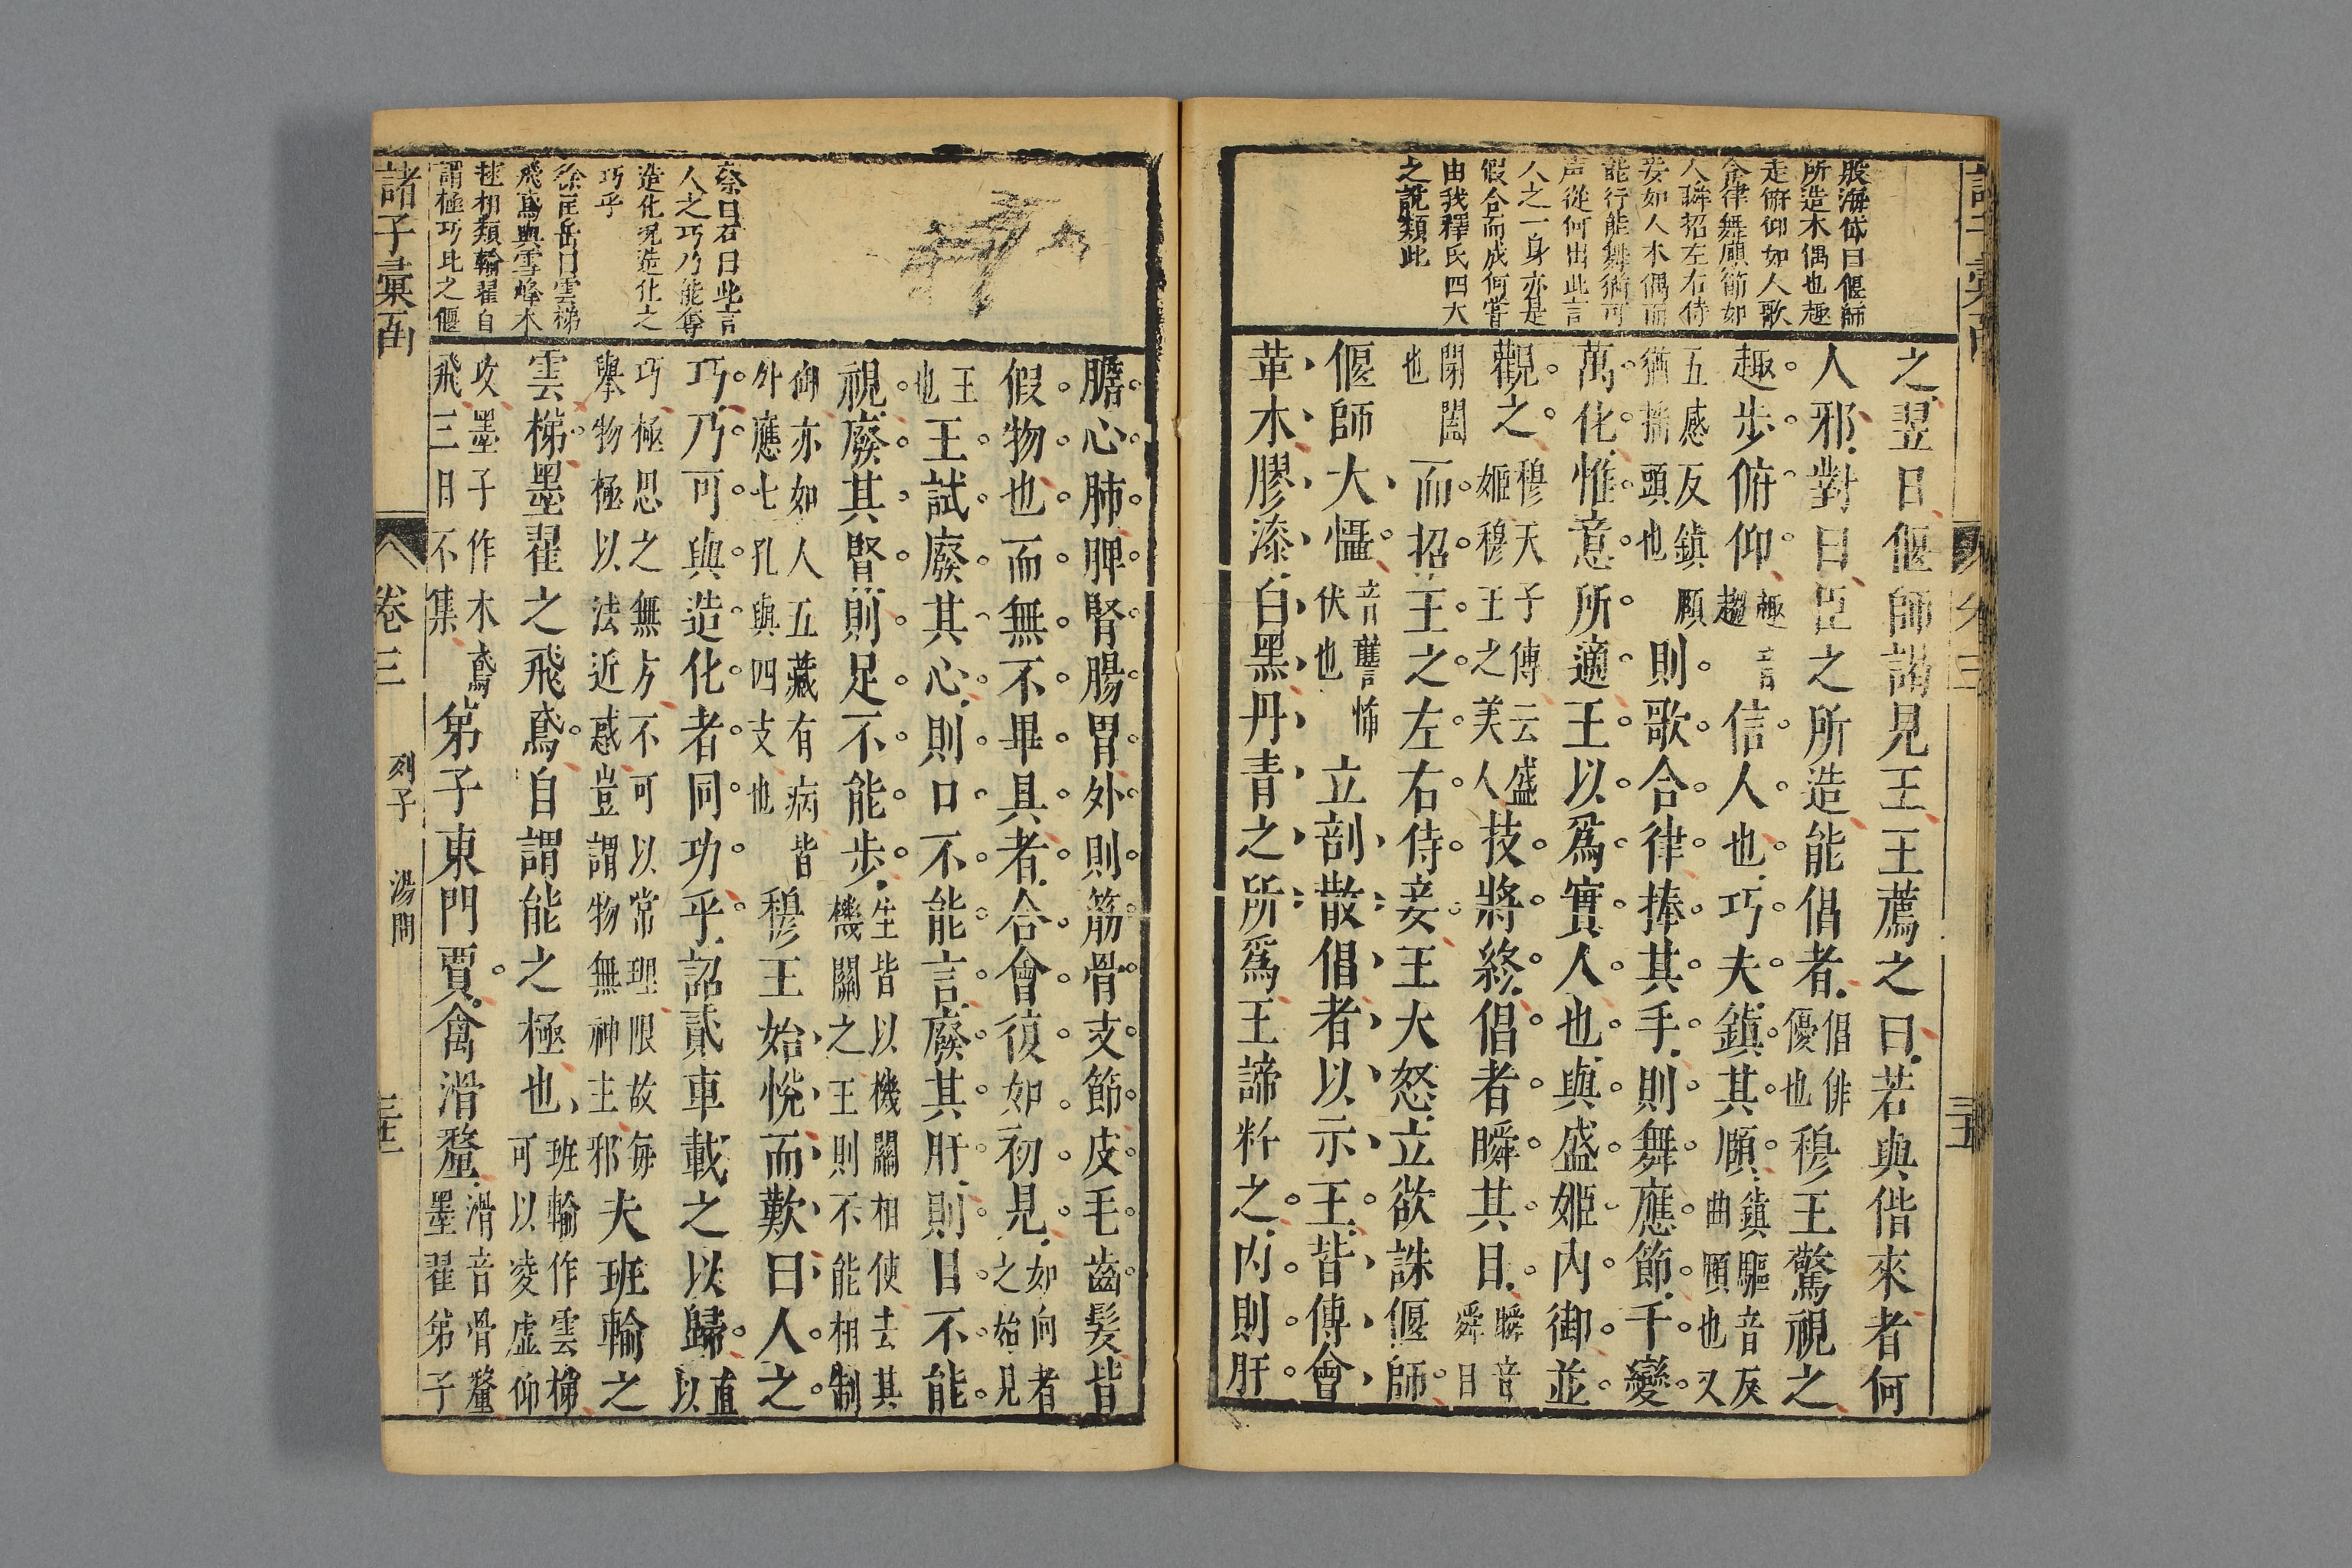 殷海岱曰偃師
所造木偶也趣
走俯仰如人歌
合律舞應節如
人瞬招左右侍
妾如人木偶而
能行能舞猶可
声從何出此言
人之一身亦是
假合而成何嘗
由我釋氏四大
之說類此
之翌日偃師謁見王王薦之曰若與偕來者何
人邪對曰臣之所造能倡者倡俳優也穆王驚視之
趣步俯仰趣音趨信人也巧夫鎮其頤鎮驅音反曲頤也又
五感反鎮頤猶搖頭也則歌合律捧其手則舞應節千變
萬化惟意所適王以為實人也與盛姬內御並
觀之穆天子傳云盛姬穆王之美人技將終倡者瞬其目瞬音舜目
開闔也而招王之左右侍妾王大怒立欲誅偃師
偃師大懾音讋怖伏也立剖散倡者以示王皆傅會
革木膠漆白黑丹青之所為王諦料之內則肝
蔡曰石曰此言
人之巧乃能奪
造化况造化之
巧乎
徐匡岳曰雲梯
飛鳶與雪峰木
毬相類輸翟自
謂極巧比之偃
膽心肺脾腎腸胃外則筋骨支節皮毛齒髮皆
假物也而無不畢具者合會復如初見如向者之始見
王也王試廢其心則口不能言廢其肝則目不能
視廢其腎則足不能步生皆以機關相使去其機關之王則不能相制
御亦如人五藏有病皆外應七孔與四支也穆王始悅而歎曰人之
巧乃可與造化者同功乎詔貳車載之以歸直以
巧極思之無方不可以常理限故每舉物極以法近惑豈謂物無神主邪夫班輸之
雲梯墨翟之飛鳶自謂能之極也班輸作雲梯可以凌虛仰
攻墨子作木鳶飛三日不集弟子東門賈禽滑釐滑音骨釐墨翟弟子
諸子彙函
卷三
列子
湯問